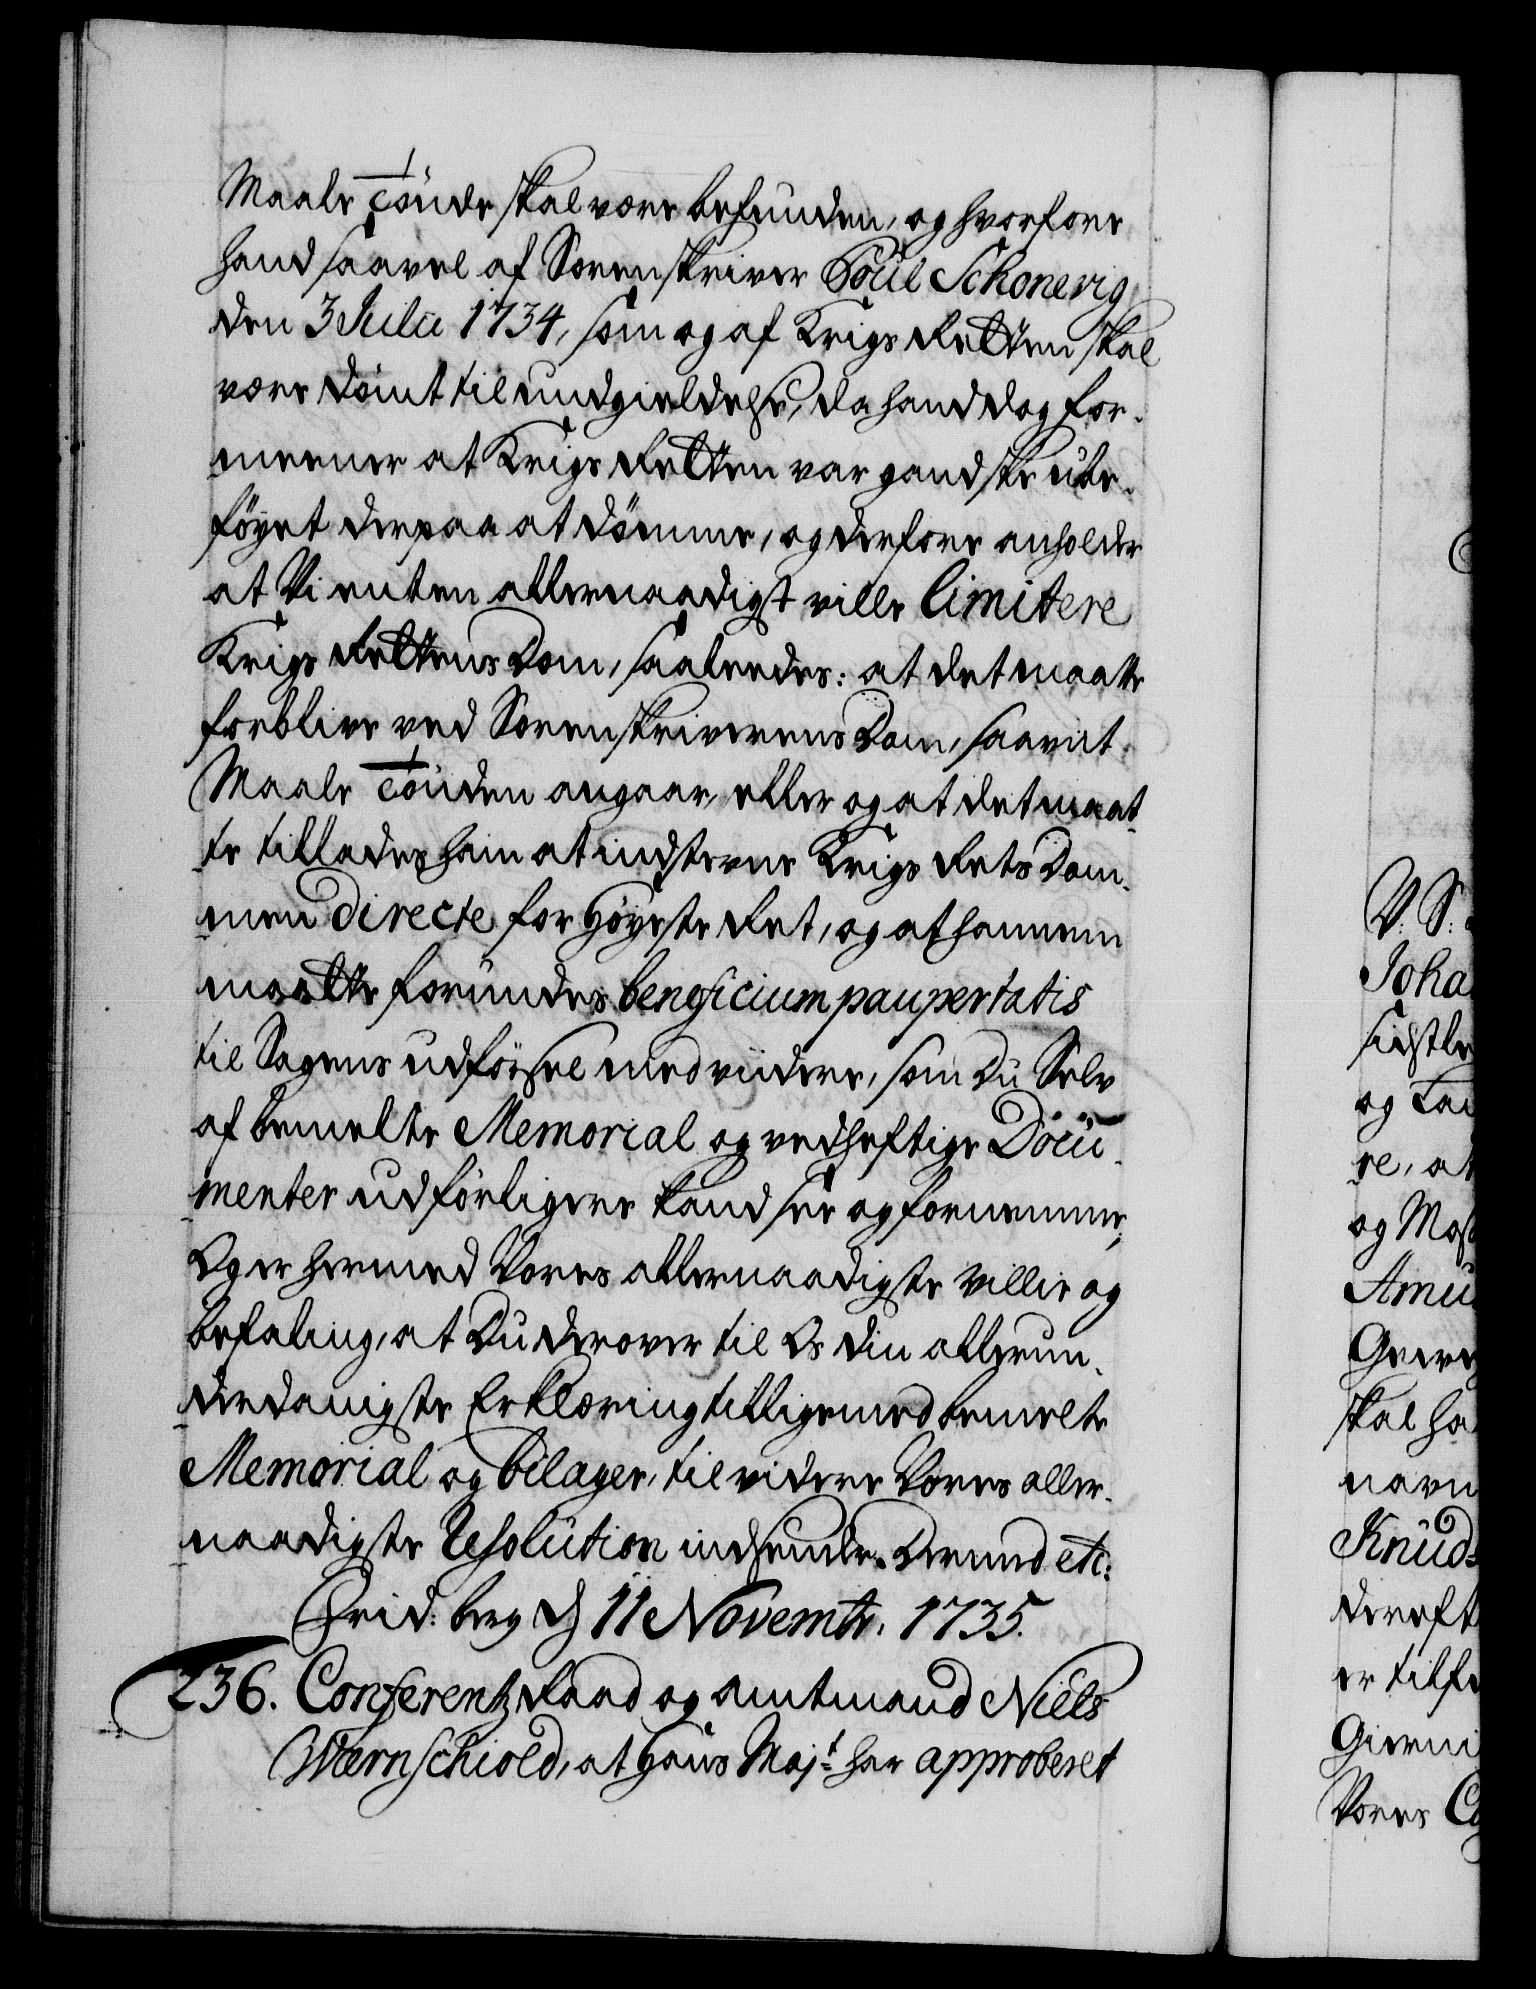 Maale Tönde skal være befunden, og hvorfore
hand saavel af Sorenskriver Poül Schonevig
den 3 Julii 1734, som og af Krigs Retten skal
være dömt til undgieldelse, da hand dog for-
meener at Krigs Retten var gandske ube-
föyet derpaa at dömme, og derfore anholder
at Vi enten allernaadigst ville limitere
Krigs Rettens Dom, saaleedes: at det maatte
forblive ved Sorenskriverens Dom, saavit
Maale Tönden angaar, eller og at det maat-
te tillades ham at indstevne Krigs Rets Dom-
men directe for Höyeste Ret, og at hannem
maatte forundes beneficium paupertatis
til Sagens udförsel med viidere, som Du Selv
af bemelte Memorial og vedheftige Docu-
menter udförligere kand see og fornemme,
Og er hermed Vores allernaadigste Villie og
befaling, at Du derover til Os din allerun-
derdanigste Erklæring tilligemed bemelte
Memorial og bilager, til videre Vores aller-
naadigste Resolution indsender. Dermed etc:
Frid: berg d 11 Novembr. 1735.
236. Conferentz Raad og Amtmand Niels
Wærnschiold, at Hans Majt. har approberet
V: S:
Joha
sidstle
og Tai
re, at
og Mos
Amu
Greve
skal ha
navn
Knuds
dereft
er tilfe
Gierni
Vores